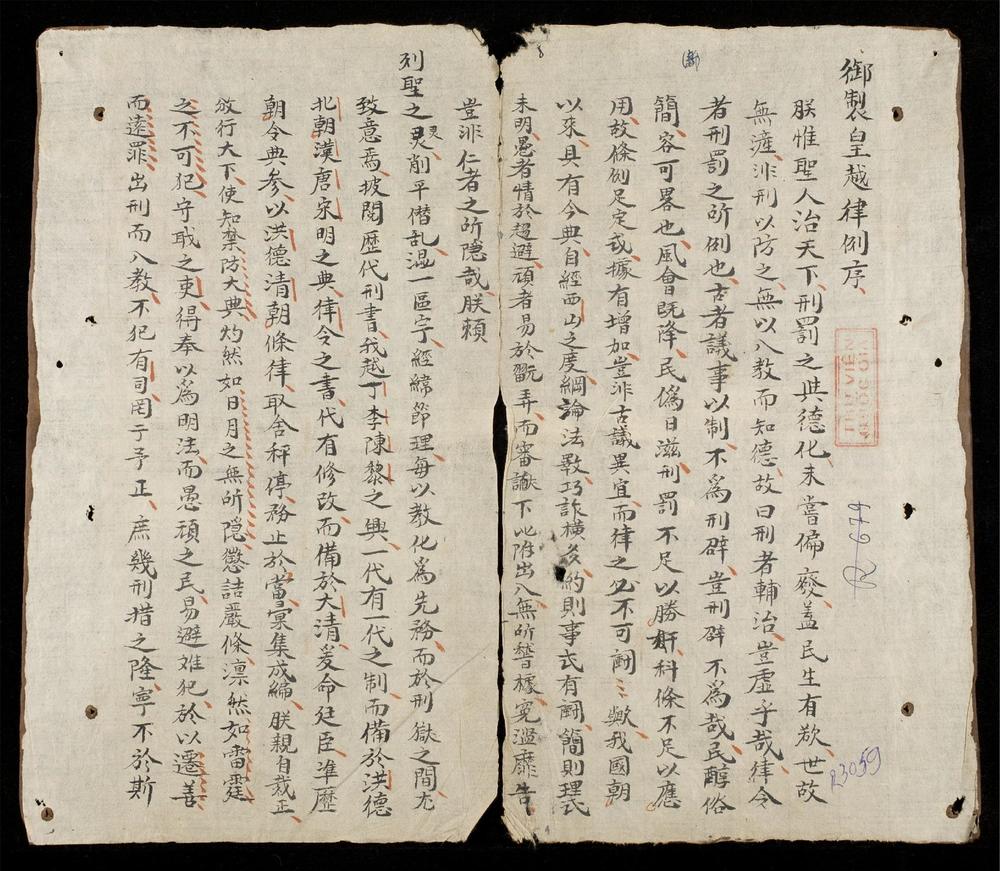 御製皇越律例序
朕惟聖人治天下刑罰之與德化未嘗偏廢蓋民生有欲世故
無滻非刑以防之無以入教而知德故曰刑者輔治豈虛乎哉律令
者刑罰之所例也古者議事以制不為刑辟豈刑辟不為哉民醇俗
簡容可畧也風會既降民偽日滋刑罰不足以勝奸科條不足以應
用故條例足定或據有增加豈非古議異宜而律之必不可闕〻歟我國朝
以來具有今典自經西山之度綱淪法斁巧詐橫多約則事或有闕簡則理或
未明愚者情於趍避頑者易於翫弄而審讞下比附出入無所瞽據冤濫靡告
豈非仁者之所隱哉朕賴
列聖之灵靈削平僭乱混一區宇經緯節理每以教化為先務而於刑獄之間尤
致意焉披閱歷代刑書我越丁李陳黎之興一代有一代之制而備於洪德
北朝漢唐宋明之典律令之書代有修改而備於大清爰命廷臣準歷
朝令典參以洪德清朝條律取舍秤停務止於當彙集成編朕親自裁正
放行大下使知禁防大典灼然如日月之無所隱懲詰嚴條凛然如雷霆
之不可犯守職之吏得奉以為明法而愚頑之民易避难犯於以遷善
而遠罪出刑而入教不犯有司罔于予正庶幾刑措之隆寧不於斯
(新)
R 679
R3059